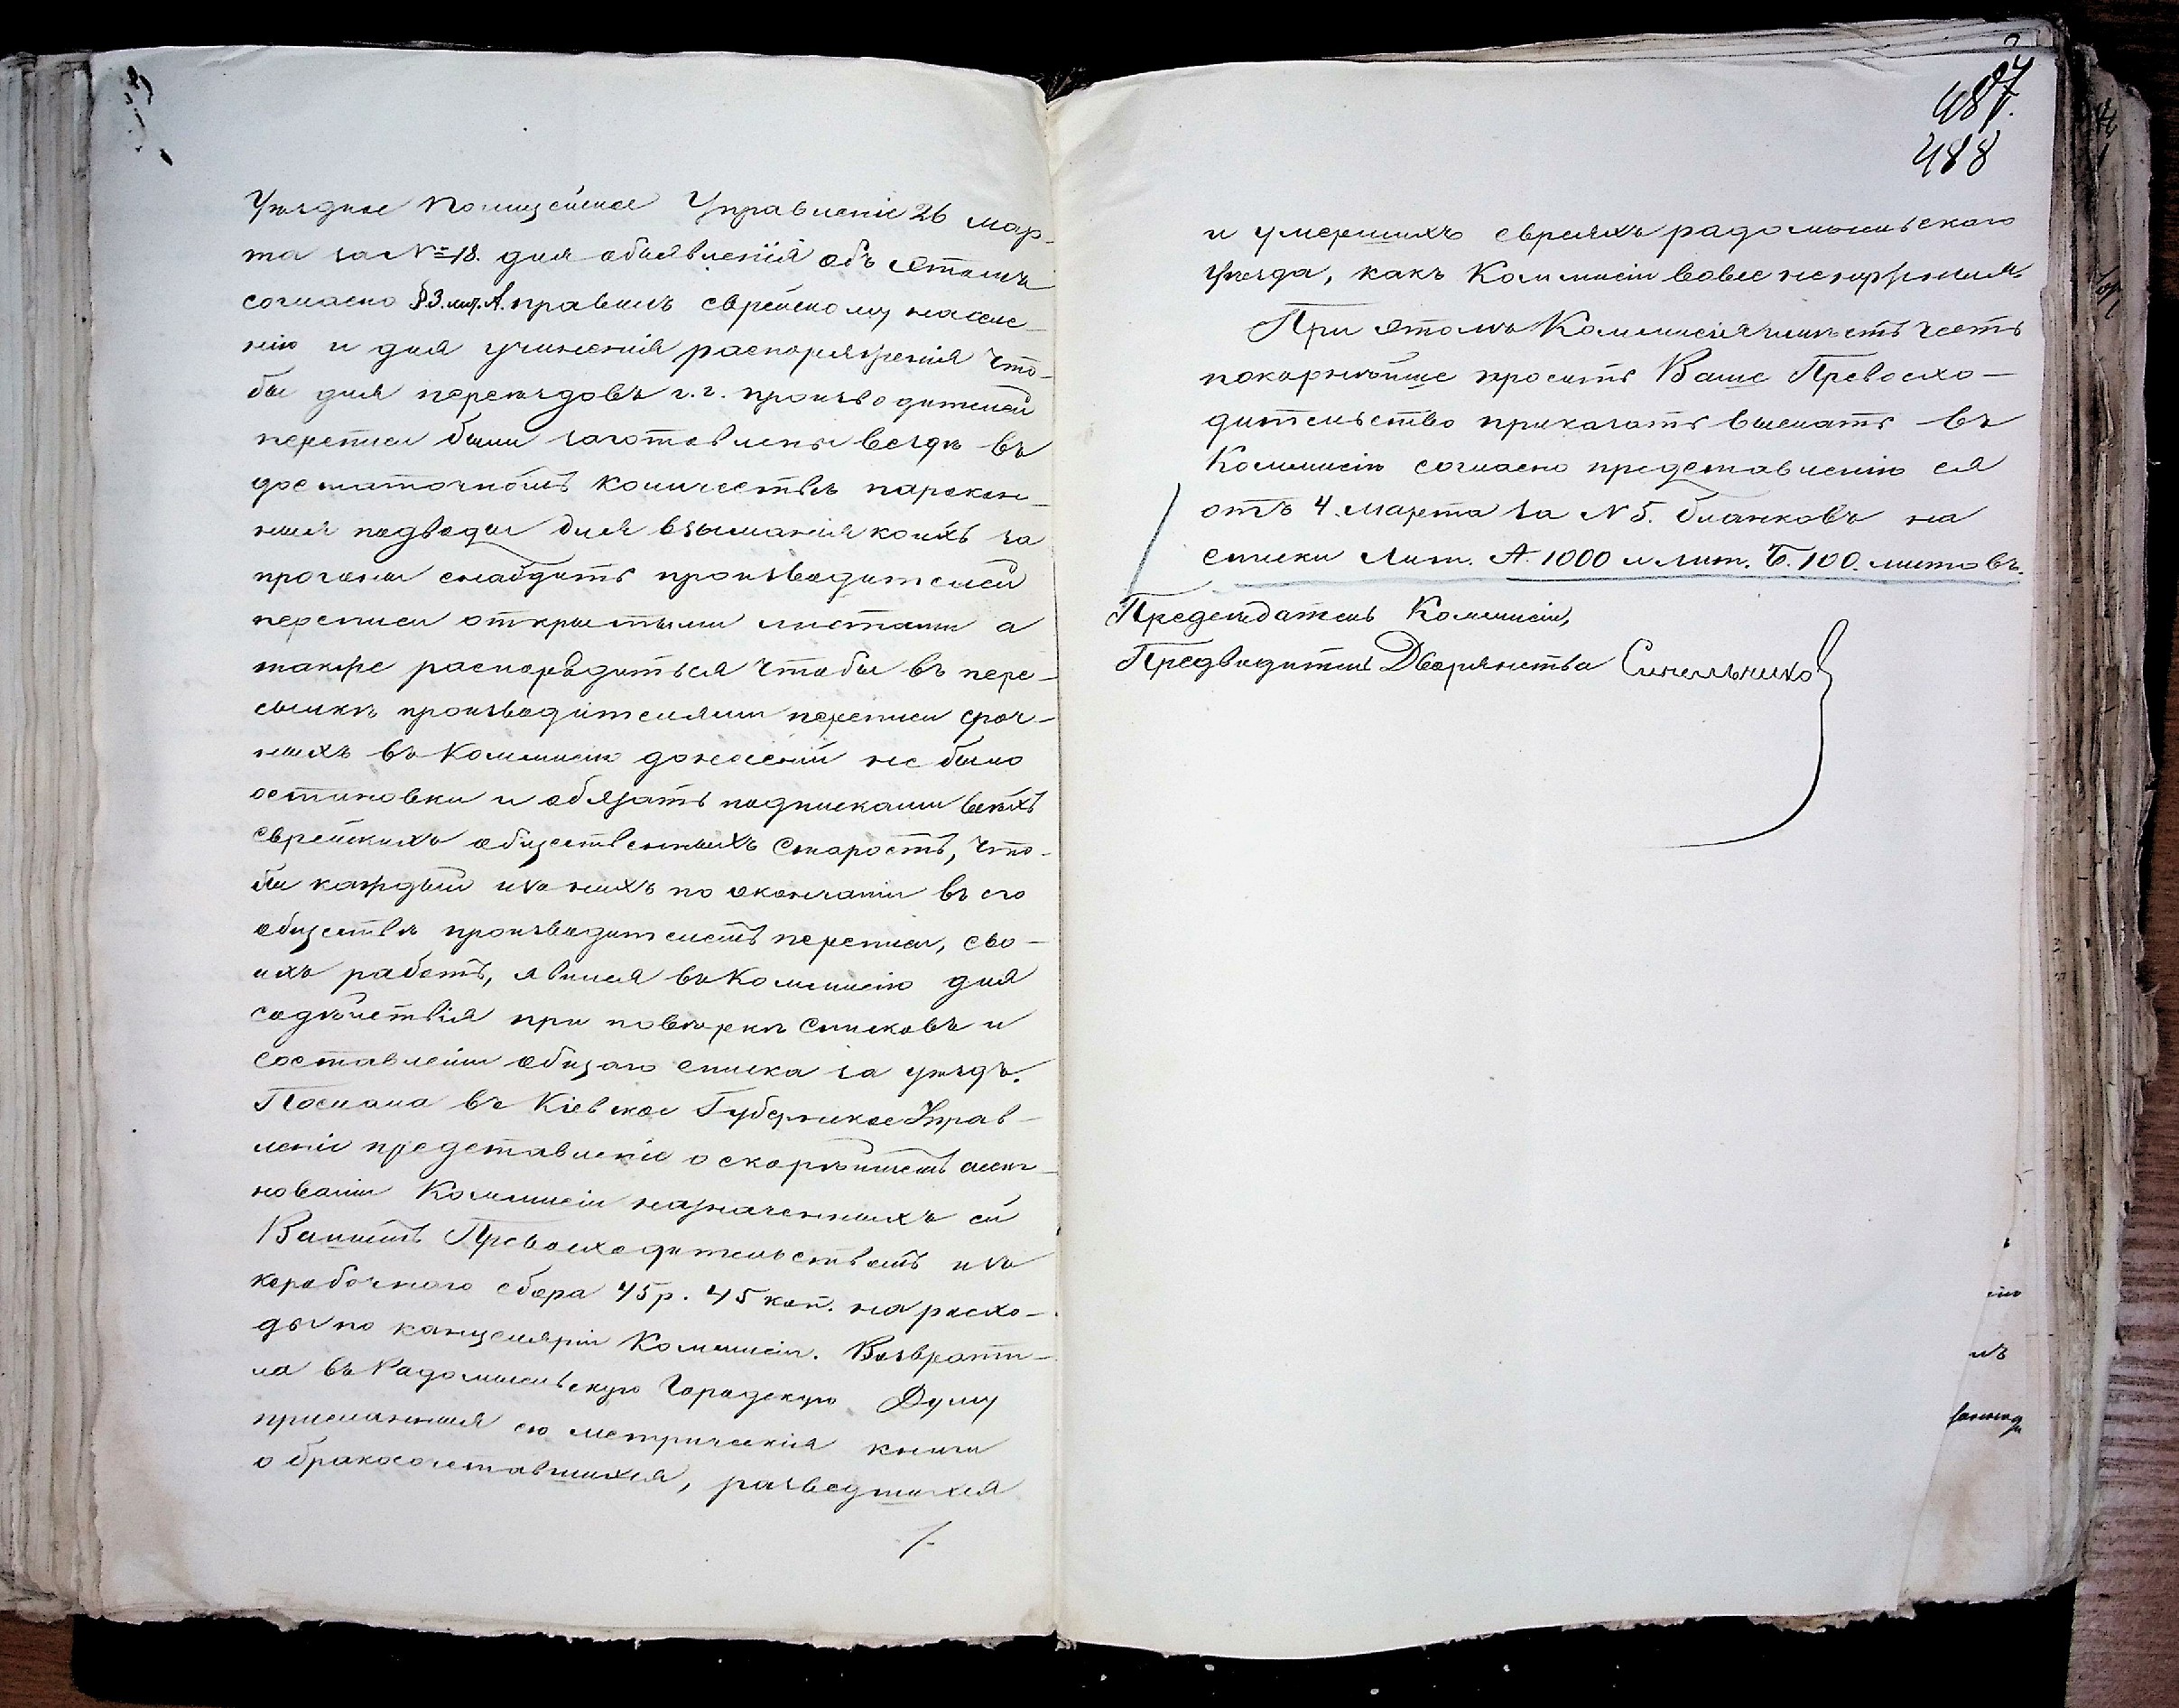 Уѣздное Полицейское Управленіе 26 мар-
та за № 18. для объявленія объ этомъ
согласно §3. лит. А. правилъ еврейскому населе-
нію и для учиненія распоряженія что-
бы для переѣздовъ г.г. производителей
переписи были заготовлены вездѣ въ
достаточномъ количествѣ парокон-
ныя подводы для взыманія коихъ за
прогоны снабдить производителей
переписи открытыми листами а
также распорядиться чтобы въ пере-
сылкѣ производителями переписи сроч-
ныхъ въ Коммисію донесеній не было
остановки и обязать подписками всѣхъ
еврейскихъ общественныхъ старостъ, что-
бы каждый изъ нихъ по окончаніи въ его
обществѣ производителемъ переписи, сво-
ихъ работъ, явился въ Коммисію для
содѣйствія при повѣркѣ списковъ и
составленіи общаго списка за уѣздъ.
Послала въ Кіевское Губернское Управ-
леніе представленіе о скорѣйшемъ асиг-
нованіи Коммисіи назначенныхъ ей
Вашимъ Превосходительствомъ изъ
коробочнаго сбора 45 р. 45 коп. на расхо-
ды по канцеляріи Коммисіи. Возврати-
ла въ Радомысльскую Городскую Думу
присланныя ею метрическія книги
о бракосочетавшихся, разведшихся
/.
487.
488
и умершихъ евреяхъ радомысльскаго
уѣзда, какъ Коммисіи вовсе ненужныя.
При этомъ Коммисія имѣетъ честь
покорнѣйше просить Ваше Превосхо-
дительство приказать выслать въ
Коммисію согласно представленію ея
отъ 4. Марта за N 5. бланковъ на
списки Лит. А. 1000 и лит. Б. 100. листовъ.
Предсѣдатель Коммисіи,
Предводитель Дворянства Синельников